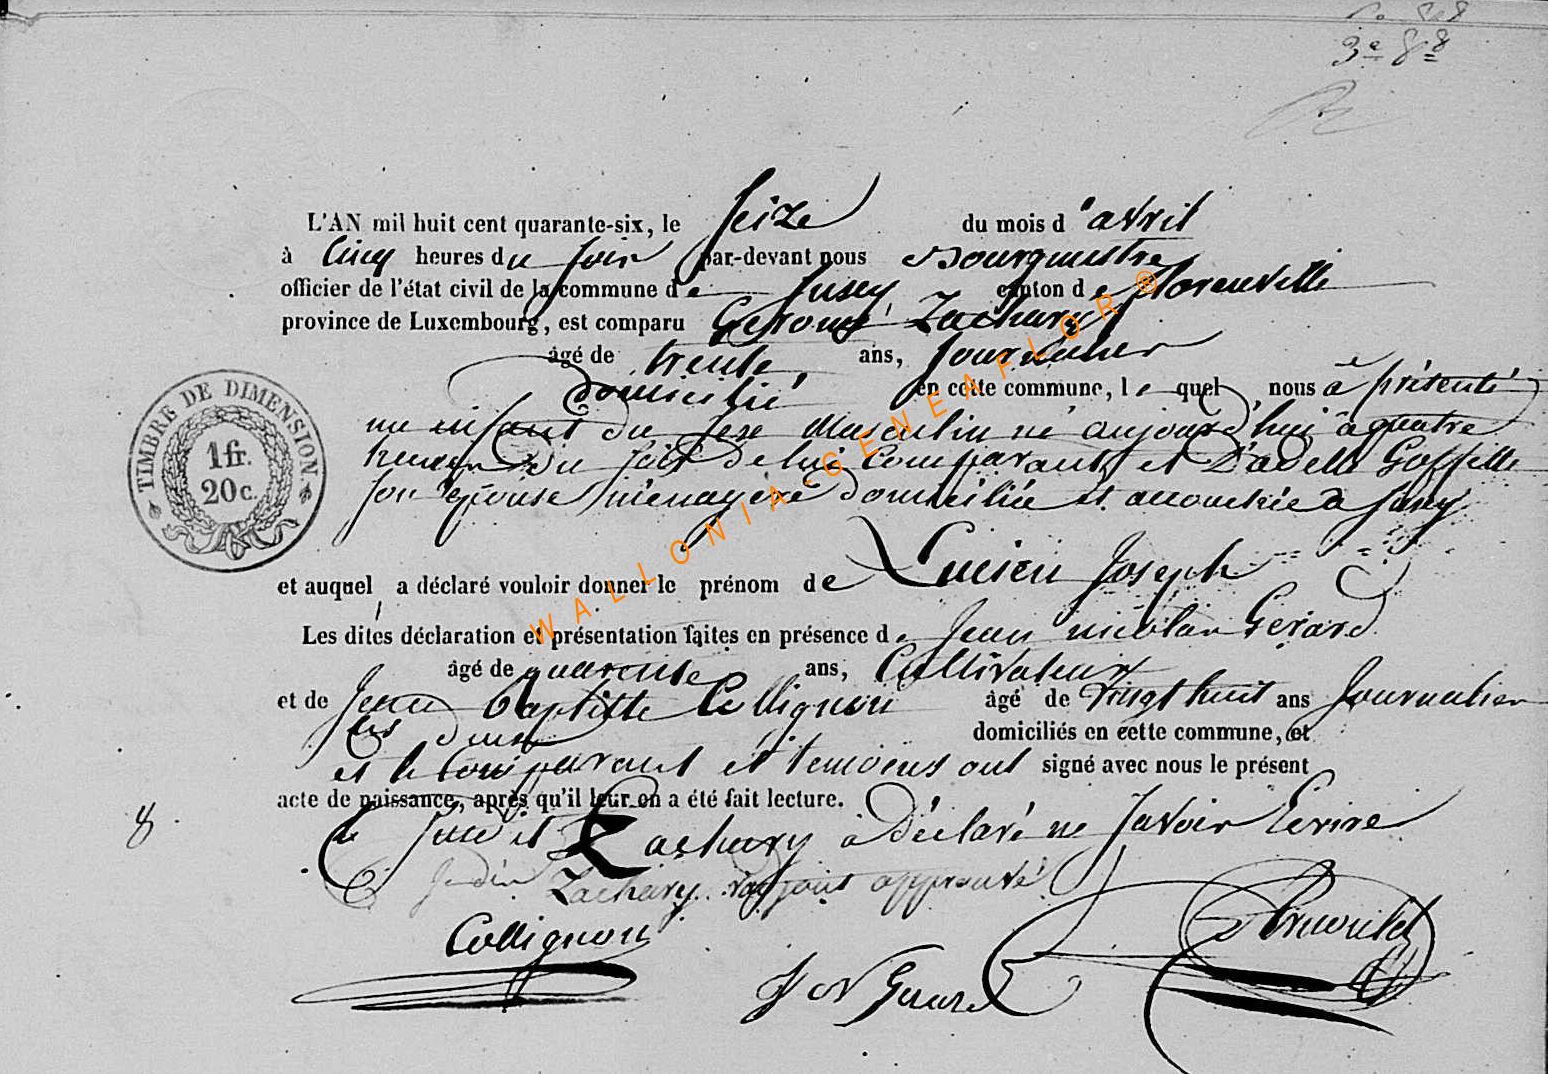 3e 8e
L'AN mil huit cent quarante-six, le Seize du mois d'avril
à Cinq heures du soir par-devant nous Bourgmestre
officier de l'état civil de la commune de Jusey canton de florenville
province de Luxembourg, est comparu Zachary
âgé de trente ans, Journalier
domicilié en cette commune, lequel, nous à présenté
un enfant du sexe Masculin né aujourd'hui à quatre
heures du soir de lui Comparant et D'adelle Goffette
son épouse ménagère domiciliée et accouchée à Jusey
et auquel a déclaré vouloir donner le prénom de Lucien Joseph
Les dites déclaration et présentation faites en présence de Jean nicolas Gérard
âgé de quarente ans, Cultivateur
et de Jean Baptiste Collignon âgé de vingt huit ans Journalier
les deux domiciliés en cette commune, et
et le Comparant et temoins ont signé avec nous le présent
acte de naissance, après qu'il leur en a été fait lecture.
8
le Zachary à déclaré ne savoir Ecrire
Zachary approuvé
Collignon
J N Gerard
TIMBRE DE DIMENSION
1 fr.
20 c.
WALLONIA-GENEAFLOR ®